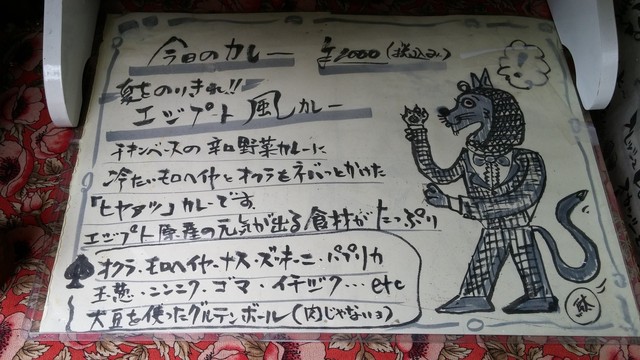 今日のカレー ¥1000(税込み)
夏をのりきれ!!
エジプト風カレー
チキンベースの辛口野菜カレーに
冷たいモロヘイヤとオクラをネバっとかけた
「ヒヤアツ」カレーです。
エジプト原産の元気が出る食材がたっぷり
♠オクラ・モロヘイヤ・ナス・ズッキーニ・パプリカ
玉葱・ニンニク・ゴマ・イチジク…etc
大豆を使ったグルテンボール(肉じゃないヨ)
!